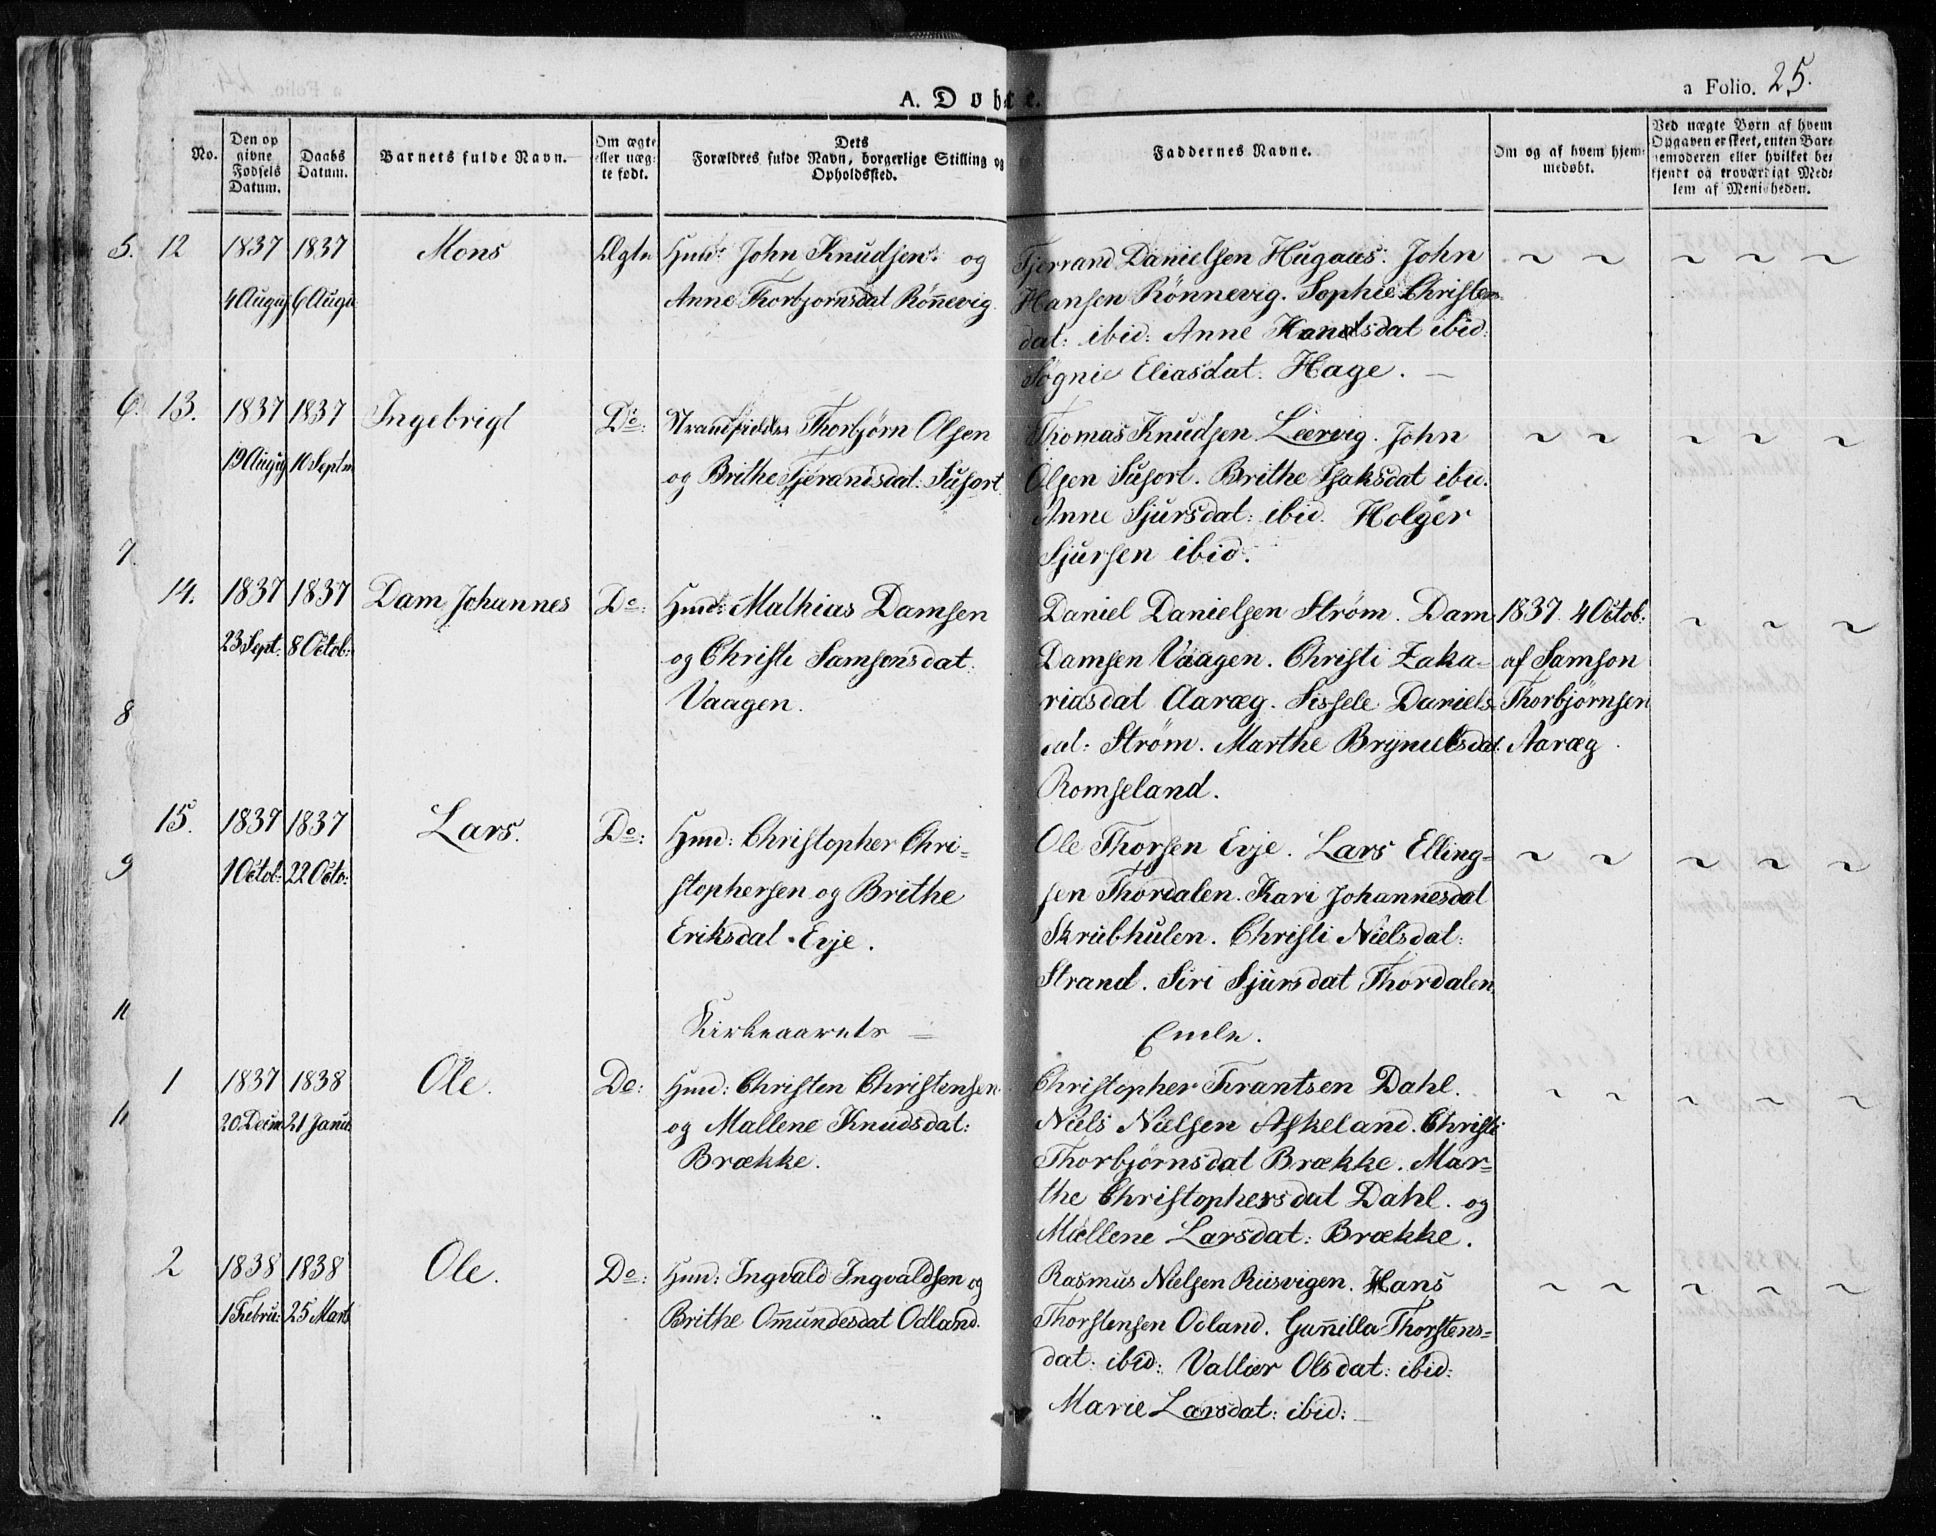 a Folio. 25.
A. Døbte.
No.
Den op
givne
Fødsels
Datum.
Daabs
Datum.
Barnets fulde Navn.
Om ægte
eller uæg-
te født.
Dets
Forældres fulde Navn, borgerlige Stilling og
Opholdssted.
Faddernes Navne.
Om og af hvem hjem-
medøbt.
Ved uægte Børn af hvem
Opgaven er skeet, enten Bar-
nemoderen eller hvilket be-
kjendt og troværdigt Med-
lem af Menigheden.
5. 12 1837 1837 Mons Ægte Huusm: John Knudsen: og
4 August 6 Augu Anne Thorbjornsdat Rønnevig.
Tjerrand Danielsen Hugaas: John
Hansen Rönnevig. Sophie Christens
dat: ibid: Anne Knudsdat ibid:
Søgnie Eliasdat. Hage. —
6. 13. 1837 1837 Ingebrigt Do: Strandsidder Thorbjørn Olsen
19 Augu 10 Septm og Brithe Tjerandsdat: Susort.
Thomas Knudsen Leervig. John
Olsen Susort. Brithe Isaksdat ibid.
Anne Sjursdat: ibid. Holger
Sjursen ibid.
7.
14. 1837 1837 Dam Johannes Do: Huusm: Mathias Damsen
23 Sept. 8 Octob: og Christi Samsonsdat.
Vaagen.
Daniel Danielsen Strøm. Dam
Damsen Vaagen. Christi Zaka-
riasdat Aaræg. Sissele Daniels-
dat: Strøm. Marthe Brynielsdat.
Romseland.
1837. 4 Octob:
af Samson
Thorbjørnsen
Aaræg.
8
15. 1837 1837 Lars. Do: Huusm: Christopher Chri-
1 Octob: 22 Octo: stophersen og Brithe
Eriksdat Evje.
Ole Thorsen Evje. Lars Elling-
sen Thordalen. Kari Johannesdat
Skrubhulen. Christi Nielsdat:
Strand. Siri Sjursdat Thordalen.
9
Kirkeaarets = Ende.
11
1 1837 1838 Ole. Do: Huusm: Christen Christensen
20 Decm 21 Janu og Mallene Knudsdat:
Brække.
Christopher Frantsen Dahl.
Niels Nielsen Askeland. Christi
Thorbjørnsdat Brække. Mar-
the Christophersdat Dahl. og
Mallene Larsdat: Brække.
11
2 1838 1838 Ole. Do: Huusm: Ingvald Ingvaldsen og
1 Febru: 25 Marts Brithe Omundesdat Odland.
Rasmus Nielsen Riisvigen. Hans
Thorstensen Odland. Gunilla Thorstens-
dat: ibid: Vallier Olsdat: ibid:
Marie Larsdat: ibid: —